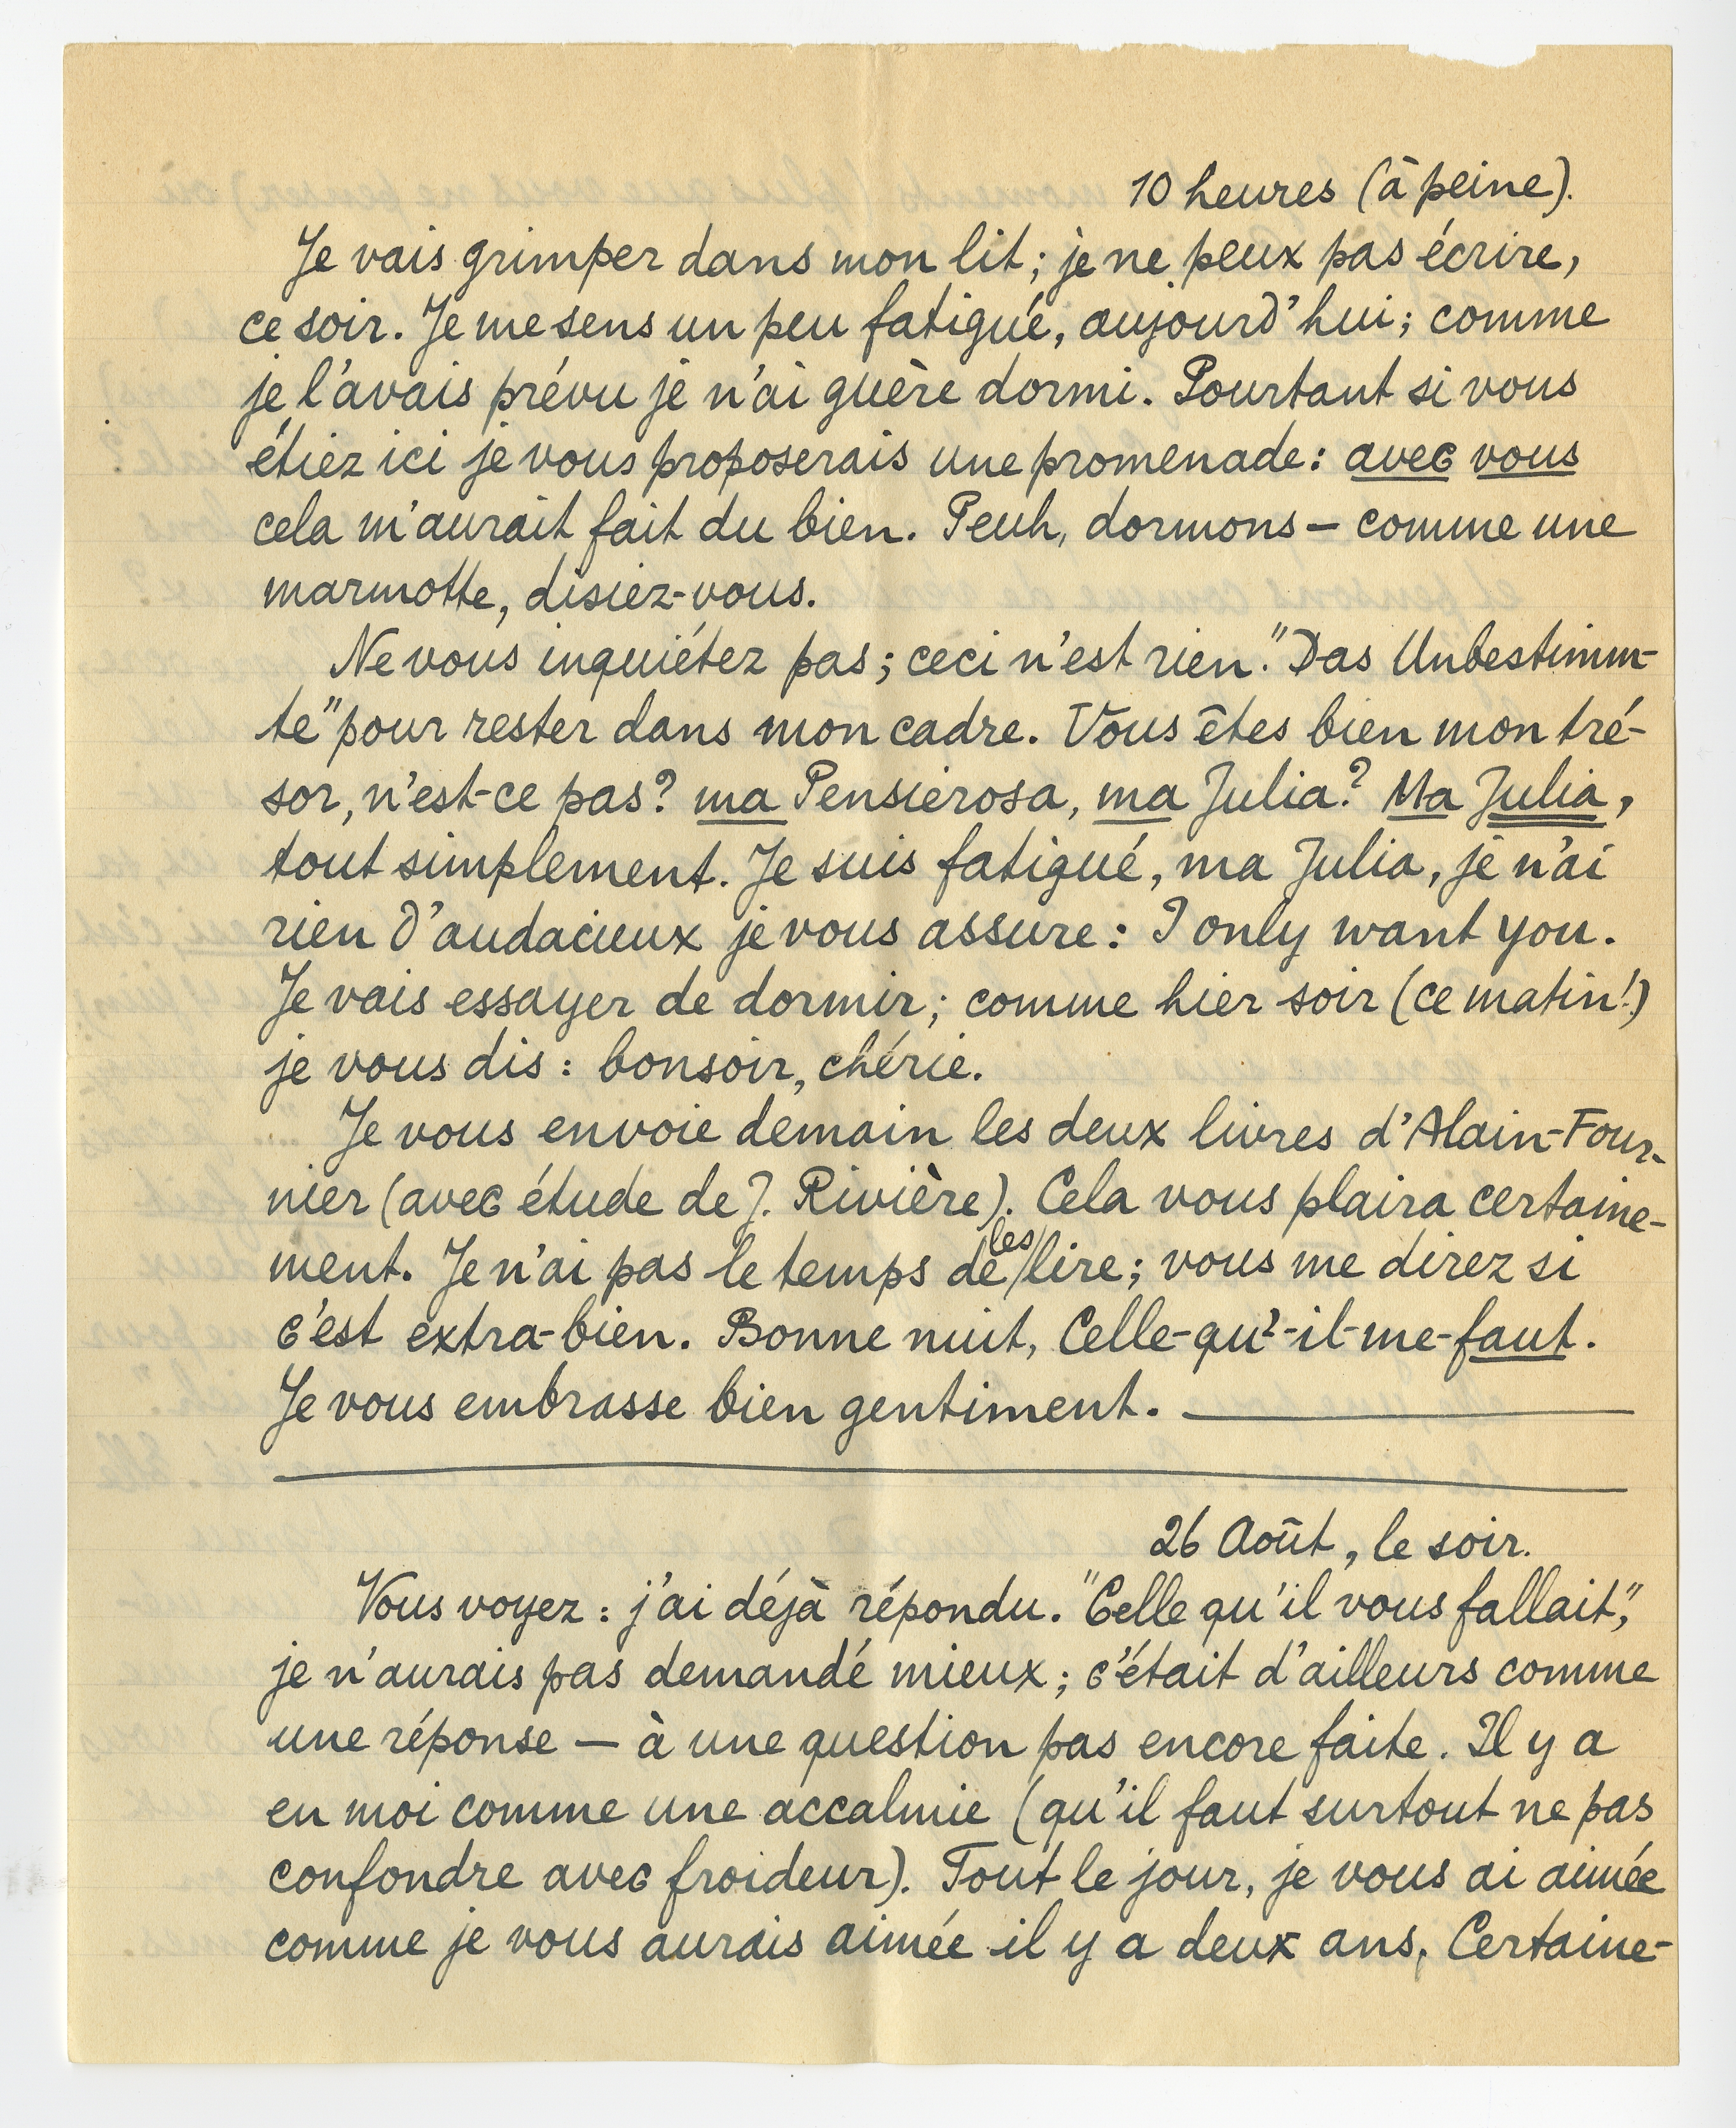 10 heures (à peine).
Je vais grimper dans mon lit ; je ne peux pas écrire,
ce soir. Je me sens un peu fatigué, aujourd'hui ; comme
je l'avais prévu je n'ai guère dormi. Pourtant si vous
étiez ici je vous proposerais une promenade : avec vous
cela m'aurait fait du bien. Peuh, dormons — comme une
marmotte, disiez-vous.
Ne vous inquiétez pas ; ceci n'est rien. "Das Unbestimm-
te" pour rester dans mon cadre. Vous êtes bien mon tré-
sor, n'est-ce pas ? ma Pensierosa, ma Julia ? Ma Julia,
tout simplement. Je suis fatigué, ma Julia, je n'ai
rien d'audacieux je vous assure : I only want you.
Je vais essayer de dormir ; comme hier soir (ce matin !)
je vous dis : bonsoir, chérie.
Je vous envoie demain les deux livres d'Alain-Four-
nier (avec étude de J. Rivière). Cela vous plaira certaine-
ment. Je n'ai pas le temps de les lire ; vous me direz si
c'est extra-bien. Bonne nuit, Celle-qu'-il-me-faut.
Je vous embrasse bien gentiment. —
26 Août, le soir.
Vous voyez : j'ai déjà répondu. "Celle qu'il vous fallait",
je n'aurais pas demandé mieux ; c'était d'ailleurs comme
une réponse — à une question pas encore faite. Il y a
en moi comme une accalmie (qu'il faut surtout ne pas
confondre avec froideur). Tout le jour, je vous ai aimée
comme je vous aurais aimée il y a deux ans. Certaine-